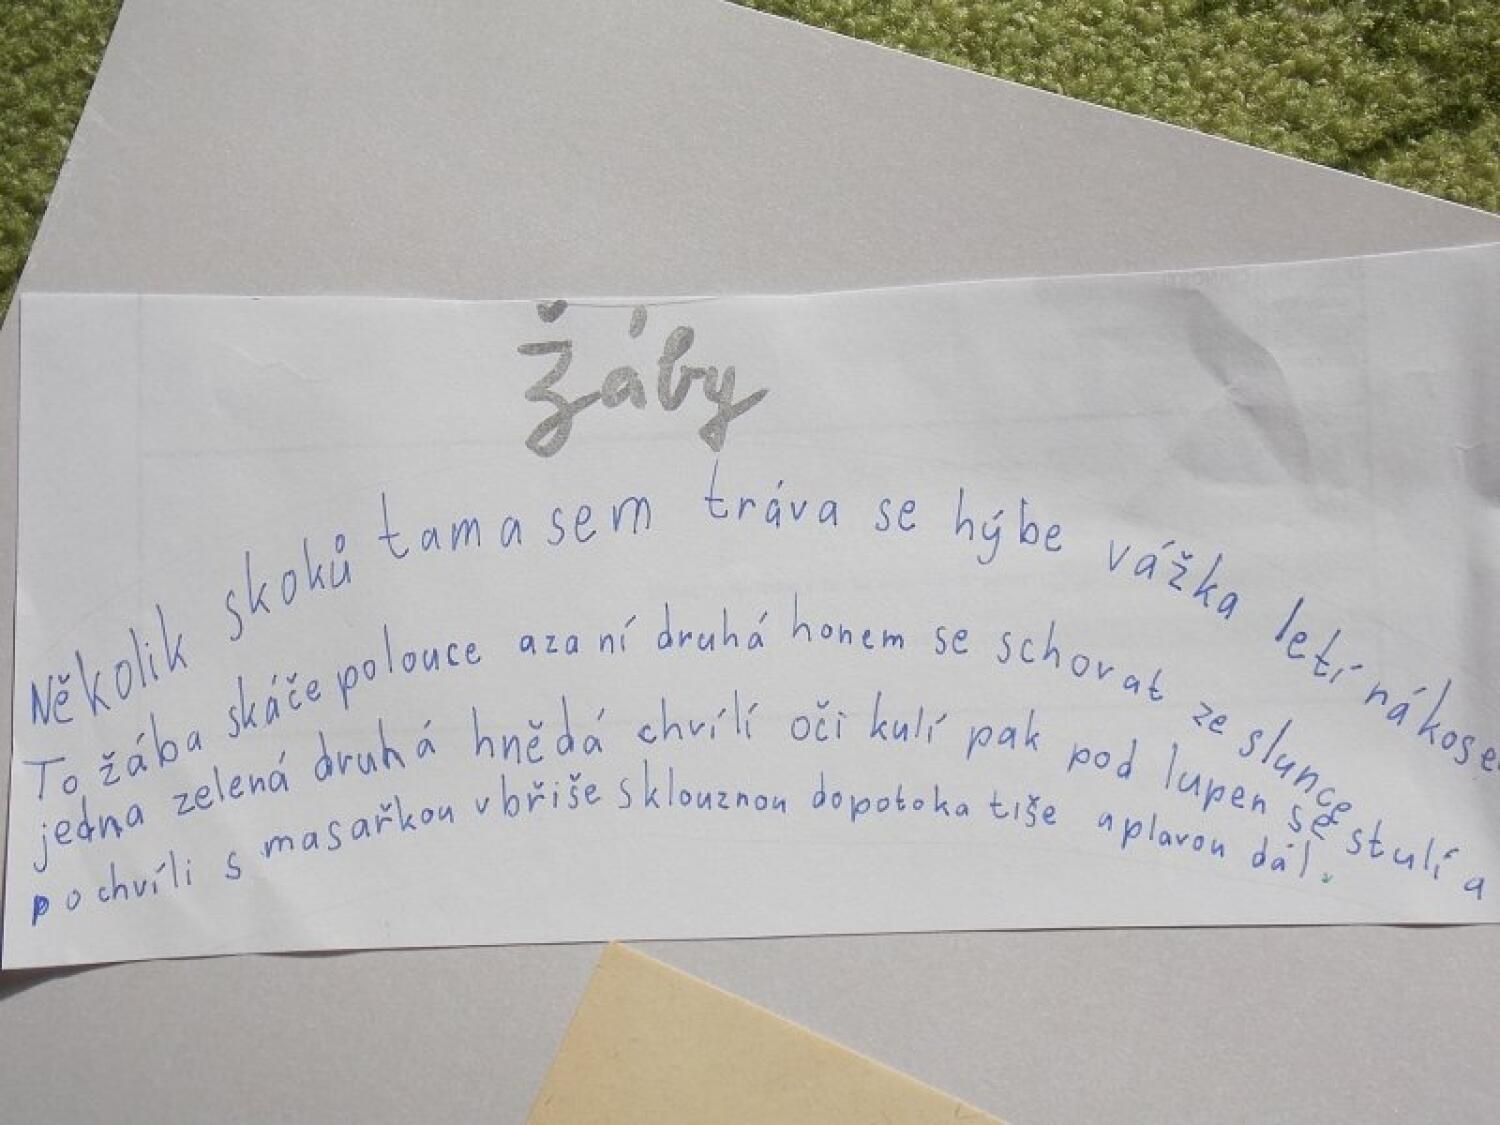 žáby
Několik skoků tam a sem tráva se hýbe vážka letí nákose
To žába skáče po louce a za ní druhá honem se schovat ze slunce
jedna zelená druhá hnědá chvílí oči kulí pak pod lupen se stulí a
po chvíli s masařkou v břiše sklouznou do potoka tiše a plavou dál.